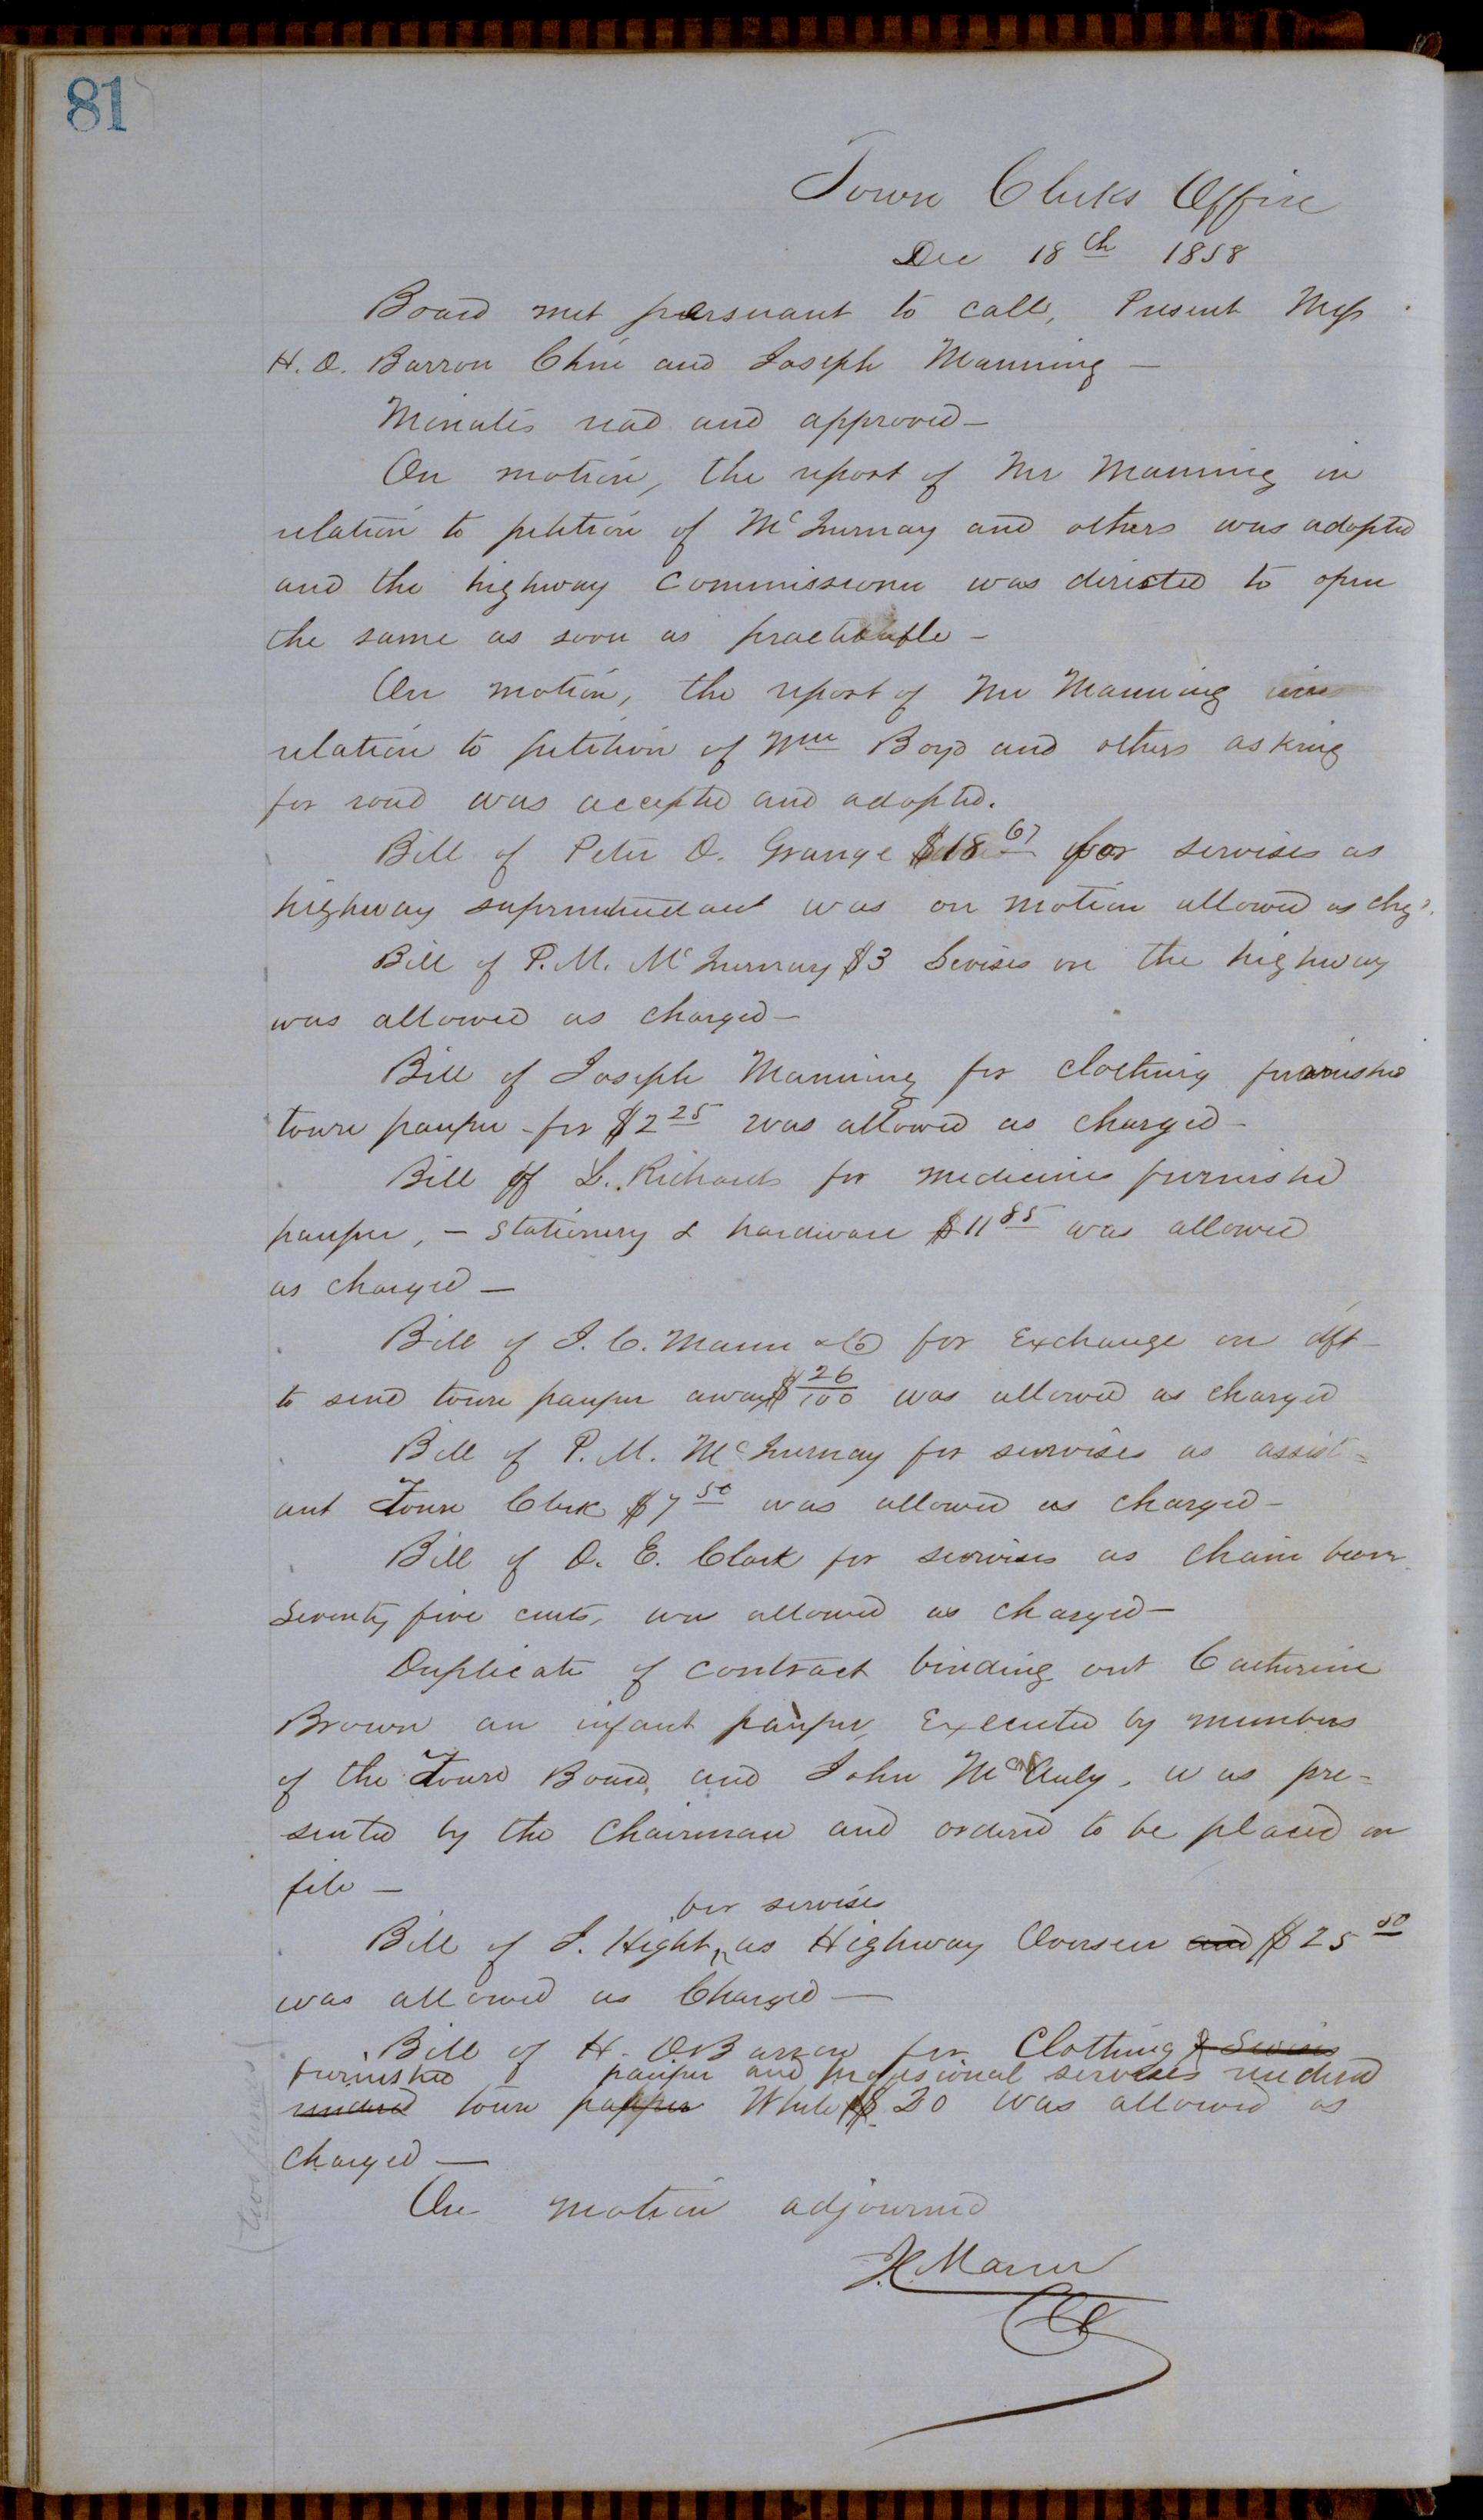 81
Town Clerks Office
Dec 18th 1858
Board met persuant to call, Present Mess
H. O. Barron Chm and Joseph Manning —
Minutes read and approved —
On motion, the report of Mr Manning in
relation to petition of Mc Inurnay and others was adopted
and the highway Commissioner was directed to open
the same as soon as practicable —
On motion, the report of Mr Manning in
relation to petition of Wm Boyd and others asking
for road was accepted and adopted.
Bill of Peter O. Grange $18 67 for servises as
highway suprintendant was on motion allowed as chgd.
Bill of P. M. Mc Inurnay $3 Servises on the highway
was allowed as charged —
Bill of Joseph Manning for clothing furnished
town pauper - for $2 25 was allowed as charged —
Bill of L. Richards for medicines furnished
pauper, — Stationery & hardware $11 85 was allowed
as charged —
Bill of J. C. Mann & Co for Exchange on dft —
to send town pauper away $ 26/100 was allowed as charged
Bill of P. M. Mc Inurnay for servises as assist =
ant Town Clerk $7 50 was allowed as charged —
Bill of O. E. Clark for servises as chain bearer
Seventy five cents, was allowed as charged —
Duplicate of contract binding out Catherine
Brown an infant pauper, Executed by members
of the Town Board, and John Mc Auly, was pre =
sented by the Chairman and ordered to be placed on
file —
for servises
Bill of J. Hight, as Highway Overseer and $25 50
was allowed as Charged —
Bill of H. O Barron for Clothing & Servises
furnished pauper and profesional servises rendered
rendered town pauper White $20 was allowed as
charged —
On motion adjourned
H. Mann
Clk